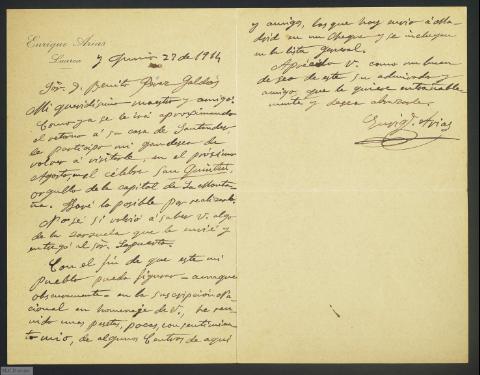 Enrique Arias
Luarca
y Junio 23 de 1914
Sor. D. Benito Pérez Galdós
Mi queridísimo maestro y amigo:
Como ya se le irá aproximando
el retorno á su casa de Santander
le participo mi gan deseo de
volver á visitarle, en el próximo
Agosto, en el célebre San Quintín,
orgullo de la capital de La Monta-
ña. Haré lo posible por realizarlo.
No sé si volvió á saber V. algo
de la zarzuela que le envié y
entregó al Sor. Lapuerta.
Con el fin de que este mi
pueblo pueda figurar - aunque
obscuramente - en la suscripción Na-
cional en homenage de V., he reu-
nido unas pesetas, pocas, con sentimien-
to mio, de algunos Centros de aquí
y amigos, las que hoy envio á Ma-
drid en un cheque y se incluyen
en la lista general.
V. como un buen
deseo de este su admirador y
amigo, que le quiere entrañable-
mente y desea abrazarle.
Arias